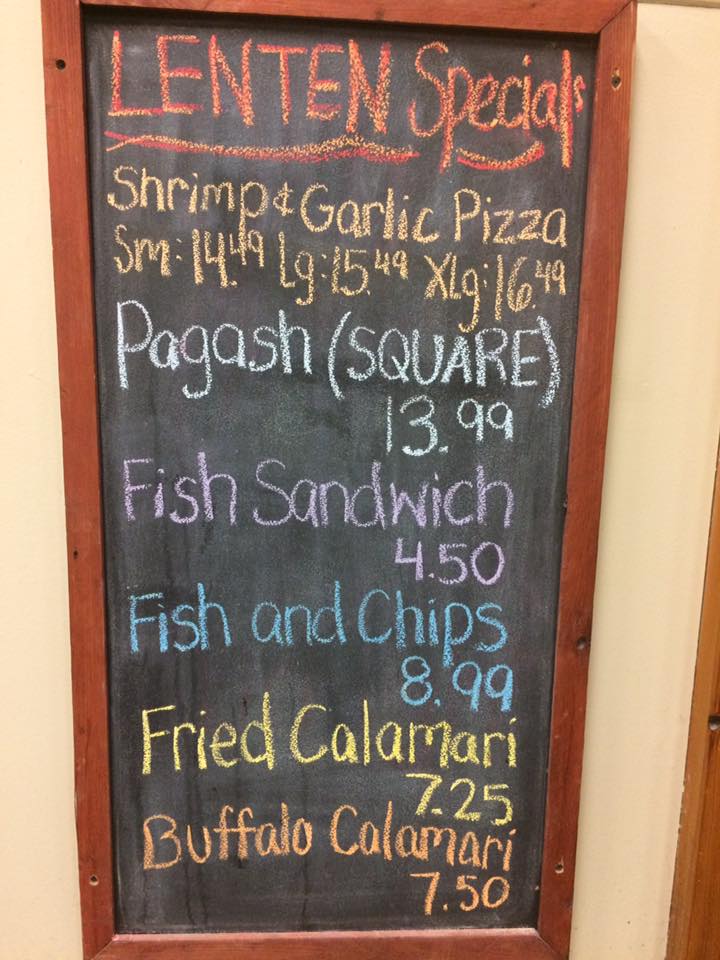 LENTEN Specials
Shrimp & Garlic Pizza
Sm: 14.49 Lg: 15.49 XLg: 16.49
Pagash (SQUARE)
13.99
Fish Sandwich
4.50
Fish and Chips
8.99
Fried Calamari
7.25
Buffalo Calamari
7.50